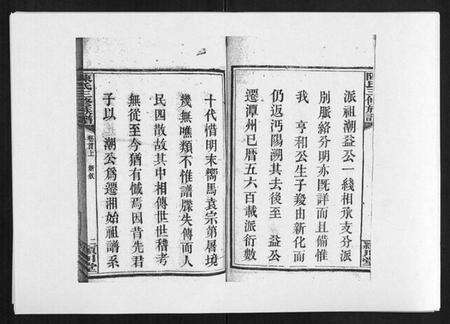 派祖潮益公一綫相承支分派
別脈絡分明亦既詳而且備惟
我 亨和公生子羖由新化而
仍返沔陽溯其去後至 益公
遷潭州已曆五六百載派衍數
十代惜明末獨馬袁宗第屠境
幾無噍類不惟譜牒失傳而人
民四散故其中相傳世世稽考
無從至今猶有憾焉因昔先君
子以 潮公爲遷湘始祖譜系
陳氏三修族譜
卷首上